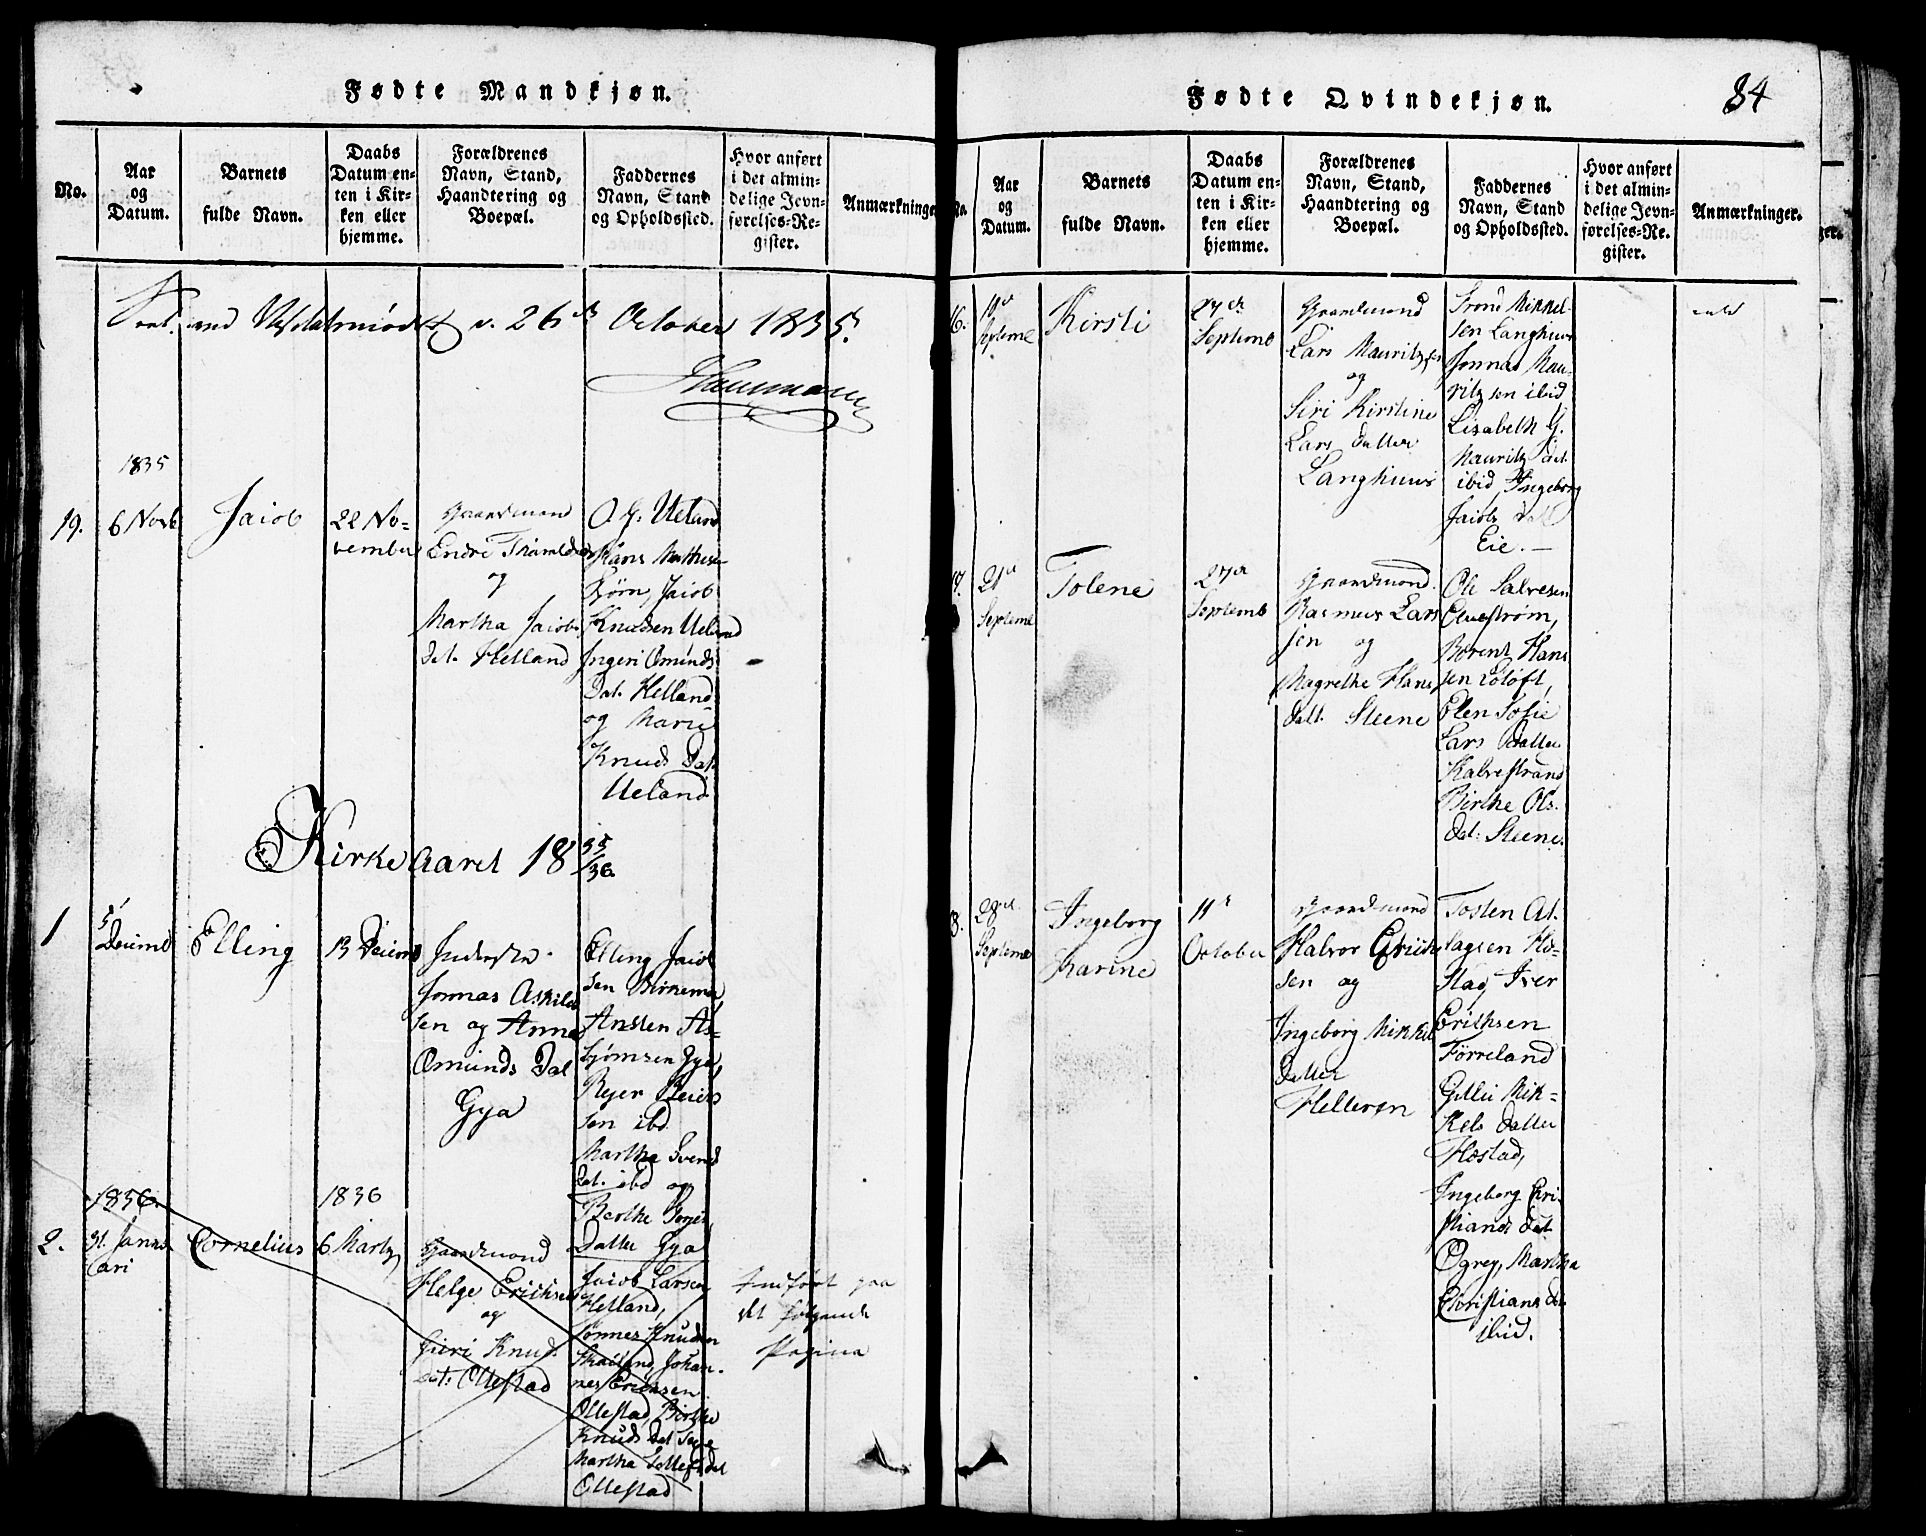 Fødte Mandkjøn.
No.
Aar
og
Datum.
Barnets
fulde Navn.
Daabs
Datum en-
ten i Kir-
ken eller
hjemme.
Forældrenes
Navn, Stand,
Haandtering og
Boepæl.
Faddernes
Navn, Stand
og Opholdssted.
Hvor anført
i det almin-
delige Jevn-
førelses-Re-
gister.
Anmærkninger
26 October 1835.
1835
19.
6 Novb
Jacob
22 No-
vember
Gaardmand
Endre
og
Martha Jacobs
dat. Helland
O. G. Ueland
Hans
Jacob
Knudsen Ueland
Ingeri Omunds
Dat. Helland
og Marie
Knuds Dat.
Ueland
Kirke Aaret 18 35/36.
1
5
Decemb
Elling
13 Decemb
Inderste
Jonnas Askild
sen og Anna
Omunds Dat
Gya
Elling Jacob
sen Birkemo,
Ansten As-
bjørnsen Gya,
Rejer Reiers
sen ibd
Martha Svends
Dat. ibd og
Berthe
Datter Gya
1836
1836
2.
31. Janu-
ari
Cornelius
6 Marts
Gaardmand
Helge Erichsen
og
Siri Knud.
dat. Ollestad
Jacob Larsen
Helland,
Tønnes Knudsen
Skailand, Johan-
nes Ericksen
Ollestad, Birthe
Knuds Dat
Martha Tollefsdat
Ollestad
Indført paa
det følgende
Pagina
Fødte Qvindekjøn.
84
No.
Aar
og
Datum.
Barnets
fulde Navn.
Daabs
Datum en-
ten i Kir-
ken eller
hjemme.
Forældrenes
Navn, Stand,
Haandtering og
Boepæl.
Faddernes
Navn, Stand
og Opholdssted.
Hvor anført
i det almin-
delige Jevn-
førelses-Re-
gister.
Anmærkninger.
16.
Septemb
Kirsti
27de
Septemb
Gaardmand
Lars Mauritzsen
og
Siri Kirstine
Lars Datter
Langhuus
Trond Mikkel-
sen Langhuus
Jonnas Mau-
ritzsen ibid
Lisabeth G.
Mauritz dat.
ibid, Ingeborg
Jacobs dat
Eie.
17.
21de
Septemb
Tolene
27de
Septemb
Gaardmand
Rasmus Lars
sen og
Magrethe Hans
datt. Steene
Ole Salvesen
Berent Hans
sen
Elen Sofie
Lars Datter
Kalvestrand
Birthe Ols.
dat. Steene.
18.
28de
Septemb
Ingeborg
Karine
11
October
Gaardmand
Halvor Erich
sen og
Ingeborg Mikkel
datter
Helleren
Tosten At-
lagsen Hø-
stad, Iver
Erichsen
Førreland
Mik-
kels datter
Høstad,
Ingeborg Cri-
stians dat.
Ogrey, Martha
Christians dat
ibid.